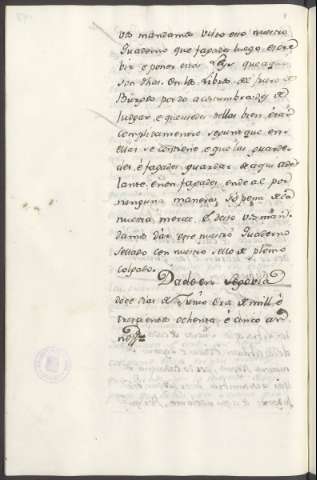 vos mandamos visto este nuestro
Quaderno que fagades luego escre
bir e poner estas Leyes que aqui
son dhas. en los libros de fuero de
Burgos por do acostumbrades de
Juzgar, e que usedes dellas bien, e tan
complidamente segunt que en
ellas se contiene, e que las guarde
des e fagades guardar de aqui ade
lante, e non fagades ende al por
ninguna manera, so pena de la
nuestra merced. E desto vos man
damos dar este nuestro Quaderno
sellado con nuestro sello de plomo
colgado.
Dado en Segovia
doce dias de Junio Era de mill e
trescientos ochenta e cinco an
nos